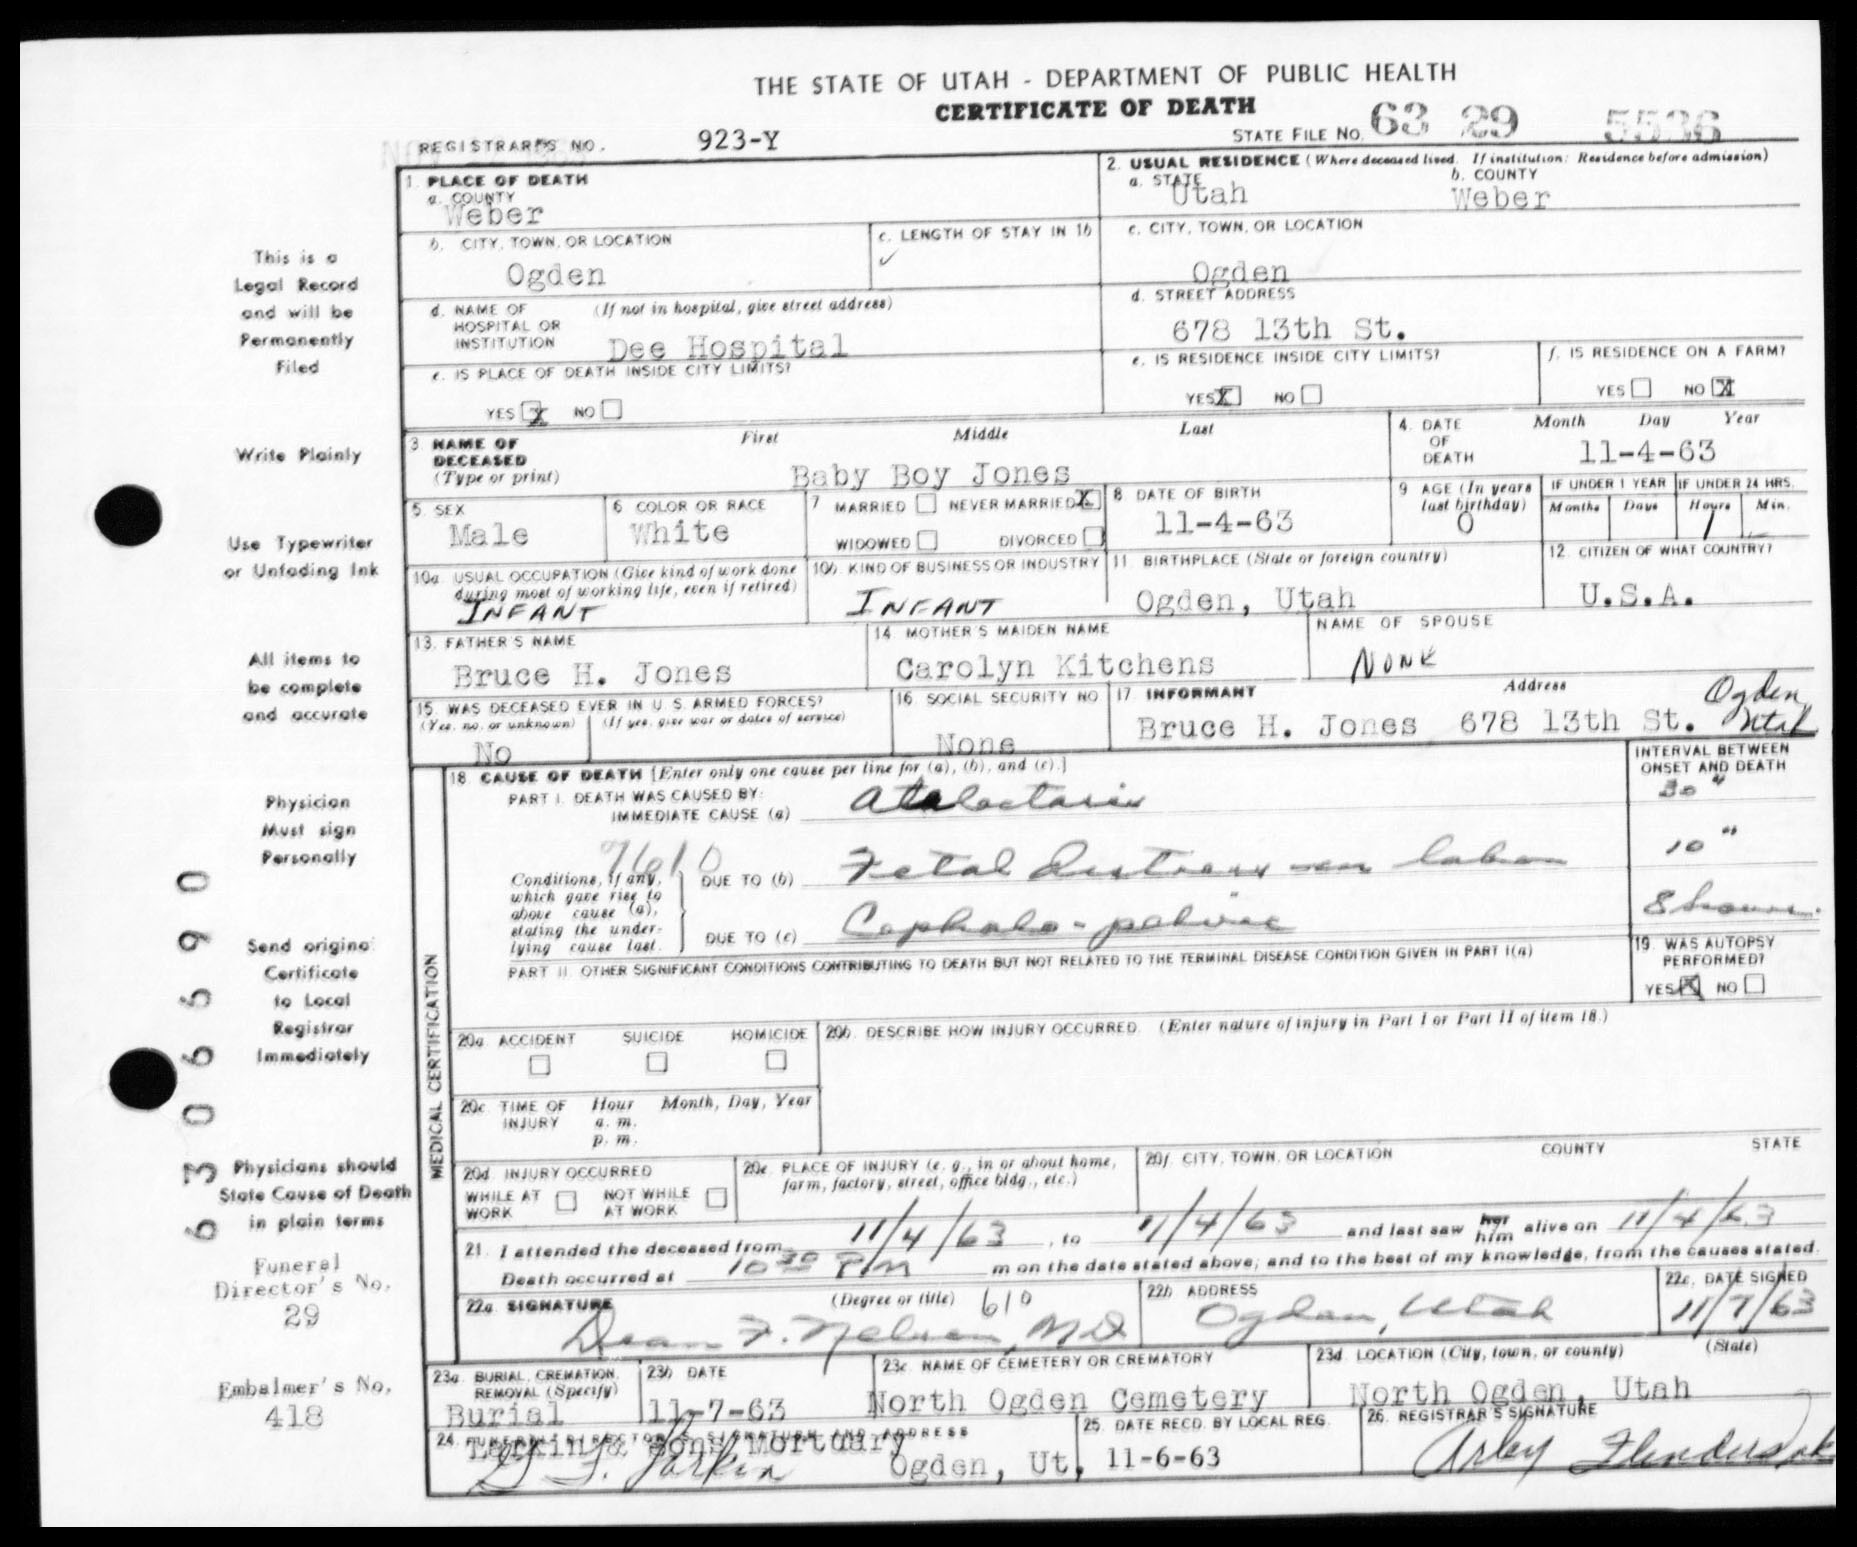 THE STATE OF UTAH - DEPARTMENT OF PUBLIC HEALTH
CERTIFICATE OF DEATH
REGISTRAR'S NO. 923-Y
STATE FILE NO. 63 29 5536
1. PLACE OF DEATH
a. COUNTY
Weber
2. USUAL RESIDENCE (Where deceased lived. If institution: Residence before admission)
a. STATE
Utah
b. COUNTY
Weber
b. CITY, TOWN, OR LOCATION
Ogden
c. LENGTH OF STAY IN 1b
c. CITY, TOWN, OR LOCATION
Ogden
d. NAME OF HOSPITAL OR INSTITUTION
(If not in hospital, give street address)
Dee Hospital
d. STREET ADDRESS
678 13th St.
e. IS PLACE OF DEATH INSIDE CITY LIMITS?
YES X NO
e. IS RESIDENCE INSIDE CITY LIMITS?
YES X NO
f. IS RESIDENCE ON A FARM?
YES NO X
3. NAME OF DECEASED (Type or print)
First Middle Last
Baby Boy Jones
4. DATE OF DEATH
Month Day Year
11-4-63
5. SEX
Male
6 COLOR OR RACE
White
7 MARRIED NEVER MARRIED X
WIDOWED DIVORCED
8 DATE OF BIRTH
11-4-63
9 AGE (In years last birthday)
0
IF UNDER 1 YEAR
Months Days
IF UNDER 24 HRS.
Hours Min.
1
10a. USUAL OCCUPATION (Give kind of work done during most of working life, even if retired)
INFANT
10b. KIND OF BUSINESS OR INDUSTRY
INFANT
11. BIRTHPLACE (State or foreign country)
Ogden, Utah
12. CITIZEN OF WHAT COUNTRY?
U.S.A.
13. FATHER'S NAME
Bruce H. Jones
14. MOTHER'S MAIDEN NAME
Carolyn Kitchens
NAME OF SPOUSE
NONE
15. WAS DECEASED EVER IN U. S. ARMED FORCES?
(Yes, no, or unknown) (If yes, give war or dates of service)
No
16. SOCIAL SECURITY NO
None
17. INFORMANT Address
Bruce H. Jones 678 13th St. Ogden, Utah
MEDICAL CERTIFICATION
18. CAUSE OF DEATH [Enter only one cause per line for (a), (b), and (c).]
INTERVAL BETWEEN ONSET AND DEATH
PART I. DEATH WAS CAUSED BY:
IMMEDIATE CAUSE (a) Atelectasis 30"
Conditions, if any, which gave rise to above cause (a), stating the underlying cause last.
DUE TO (b) Fetal distress in labor 10"
DUE TO (c) Cephalo-pelvic 8 hours.
PART II. OTHER SIGNIFICANT CONDITIONS CONTRIBUTING TO DEATH BUT NOT RELATED TO THE TERMINAL DISEASE CONDITION GIVEN IN PART I(a)
19. WAS AUTOPSY PERFORMED?
YES X NO
20a. ACCIDENT SUICIDE HOMICIDE
20b. DESCRIBE HOW INJURY OCCURRED. (Enter nature of injury in Part I or Part II of item 18.)
20c. TIME OF INJURY
Hour Month, Day, Year
a. m.
p. m.
20d. INJURY OCCURRED
WHILE AT WORK NOT WHILE AT WORK
20e. PLACE OF INJURY (e. g., in or about home, farm, factory, street, office bldg., etc.)
20f. CITY, TOWN, OR LOCATION COUNTY STATE
21. I attended the deceased from 11/4/63, to 11/4/63 and last saw her him alive on 11/4/63
Death occurred at 10 30 PM m on the date stated above; and to the best of my knowledge, from the causes stated.
22a. SIGNATURE (Degree or title) 610
Dean F. Nelson, MD
22b. ADDRESS
Ogden, Utah
22c. DATE SIGNED
11/7/63
23a. BURIAL, CREMATION, REMOVAL (Specify)
Burial
23b. DATE
11-7-63
23c. NAME OF CEMETERY OR CREMATORY
North Ogden Cemetery
23d. LOCATION (City, town, or county) (State)
North Ogden, Utah
24. FUNERAL DIRECTOR'S SIGNATURE AND ADDRESS
Larkin & Sons Mortuary
Larkin Ogden, Ut.
25. DATE RECD. BY LOCAL REG.
11-6-63
26. REGISTRAR'S SIGNATURE
This is a
Legal Record
and will be
Permanently
Filed
Write Plainly
Use Typewriter
or Unfading Ink
All items to
be complete
and accurate
Physician
Must sign
Personally
Send original
Certificate
to Local
Registrar
Immediately
Physicians should
State Cause of Death
in plain terms
Funeral
Director's No.
29
Embalmer's No.
418
630659​0